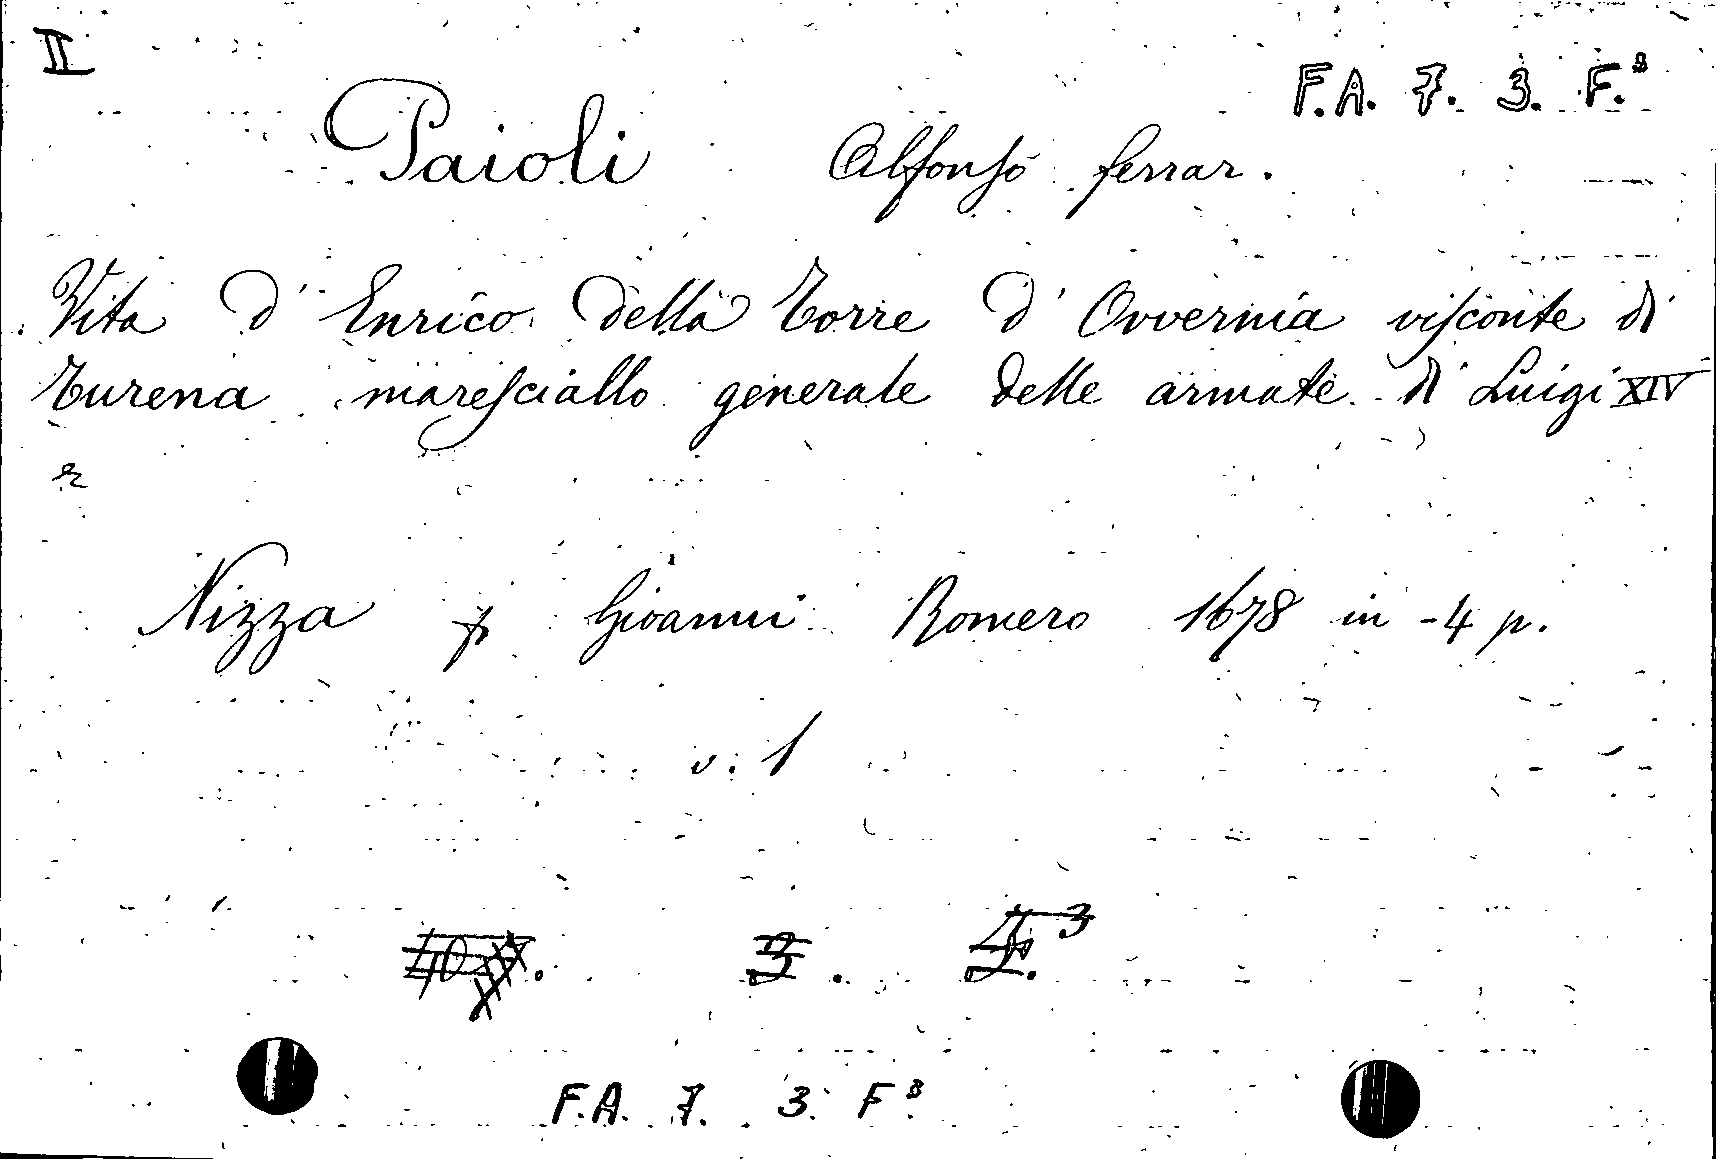 II
F.A. 7. 3. F.³
Paioli Alfonso ferrar.
Vita d' Enrico della Torre d' Overnia visconte di
Turena maresciallo generale delle armate di Luigi XIV
Nizza Giovanni Romero 1678 in-4 p.
v. 1
3.
F.A. 7. 3. F³